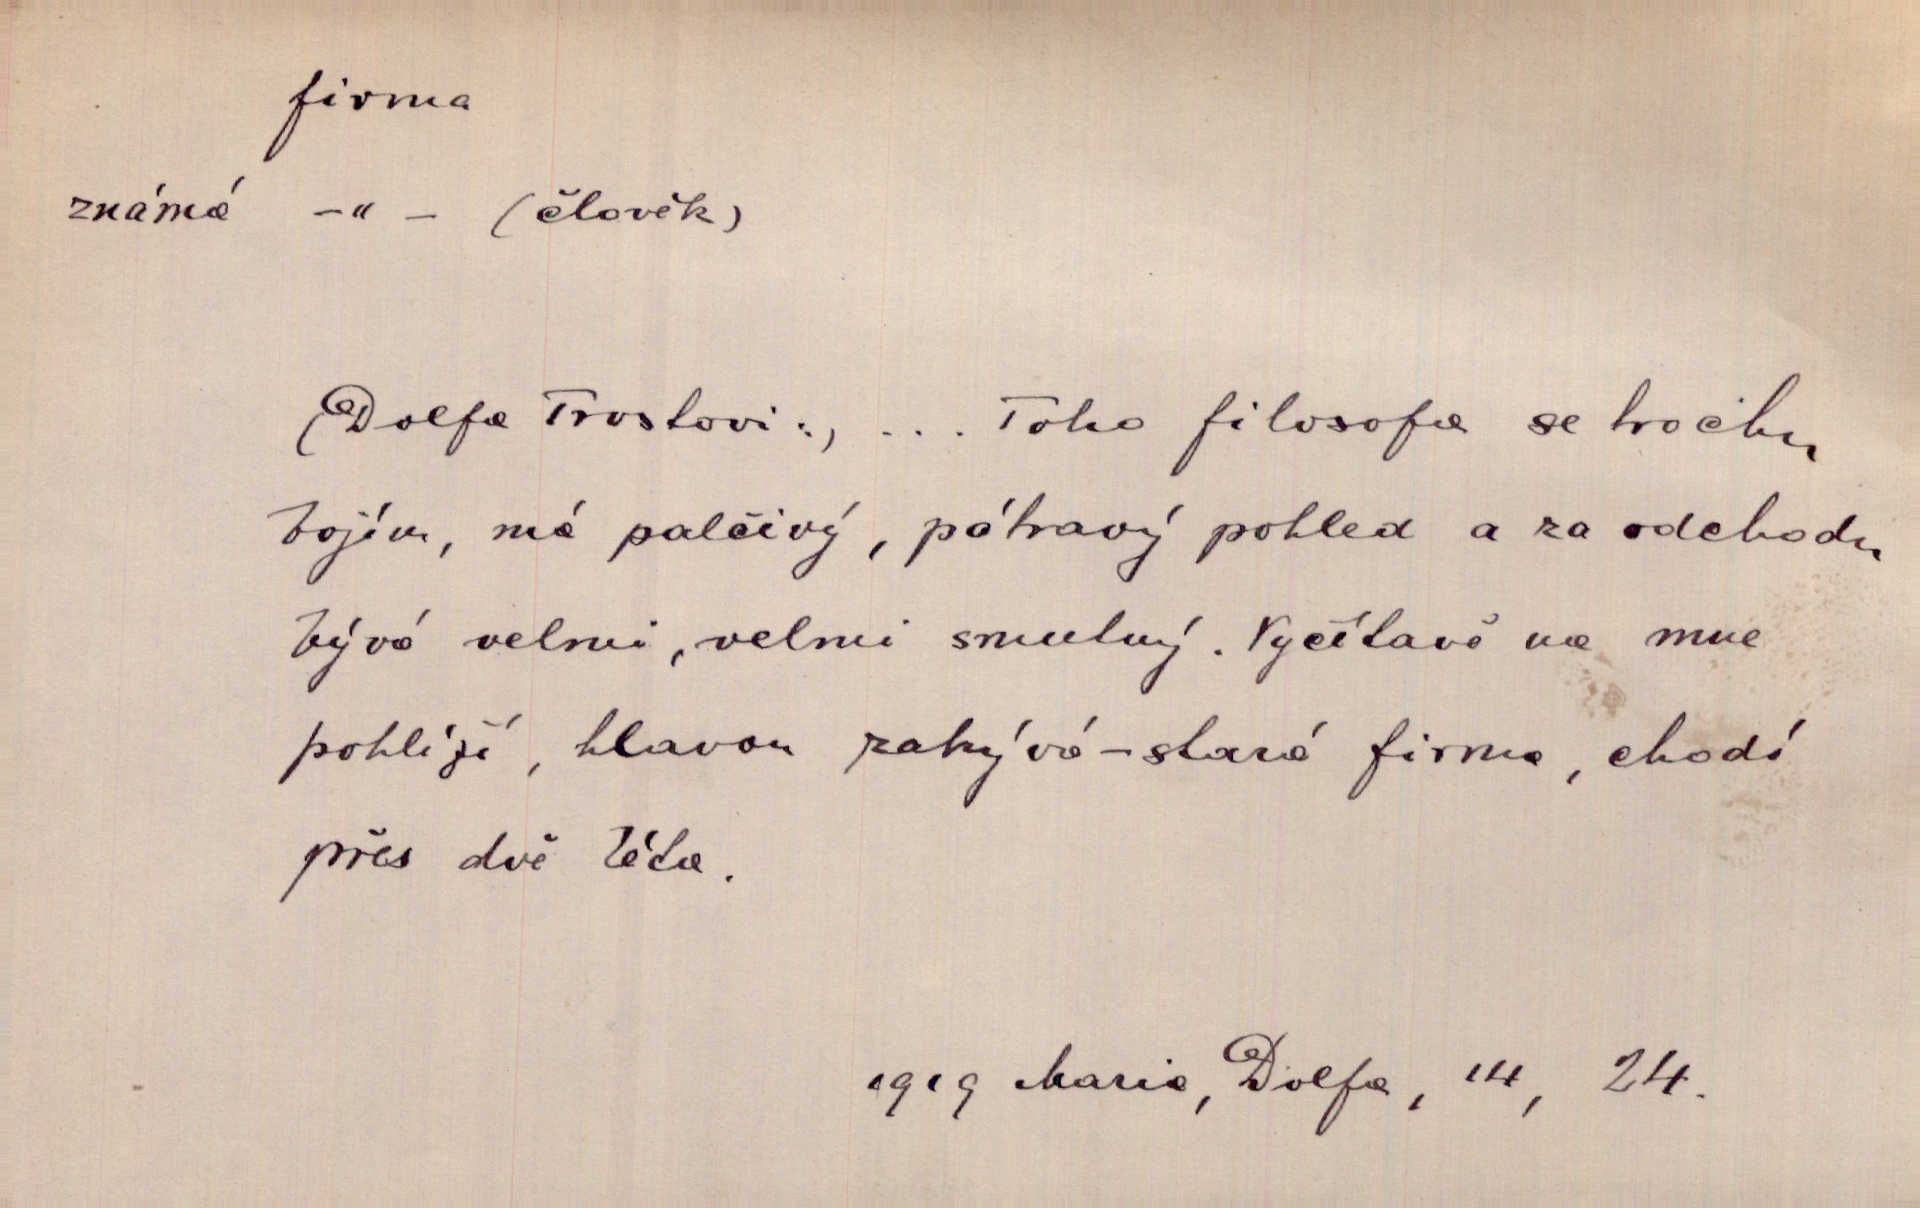 firma
známá -"- (člověk)
(Dolfa Trostovi:) ... Toho filosofa se trochu
bojím, má palčivý, pátravý pohled a za odchodu
bývá velmi, velmi smutný. Vyčítavě na mne
pohlíží, hlavou zakývá - stará firma, chodí
přes dvě léta.
1919 Maria, Dolfa, 14, 24.